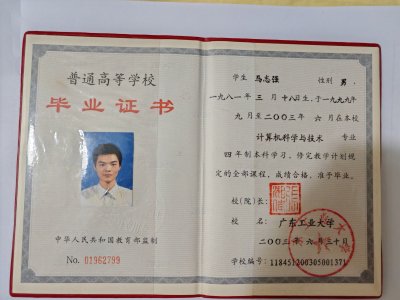 普通高等学校
毕业证书
中华人民共和国教育部监制
No. 01962799
学生 马志强 性别 男，
一九八一年 三 月 十八日生，于一九九九年
九 月至二〇〇三年 六 月在本校
计算机科学与技术 专业
四 年制本科学习，修完教学计划规
定的全部课程，成绩合格，准予毕业。
校(院)长：
校 名： 广东工业大学
二〇〇三年 六 月 三十 日
学校编号： 118451200305001371